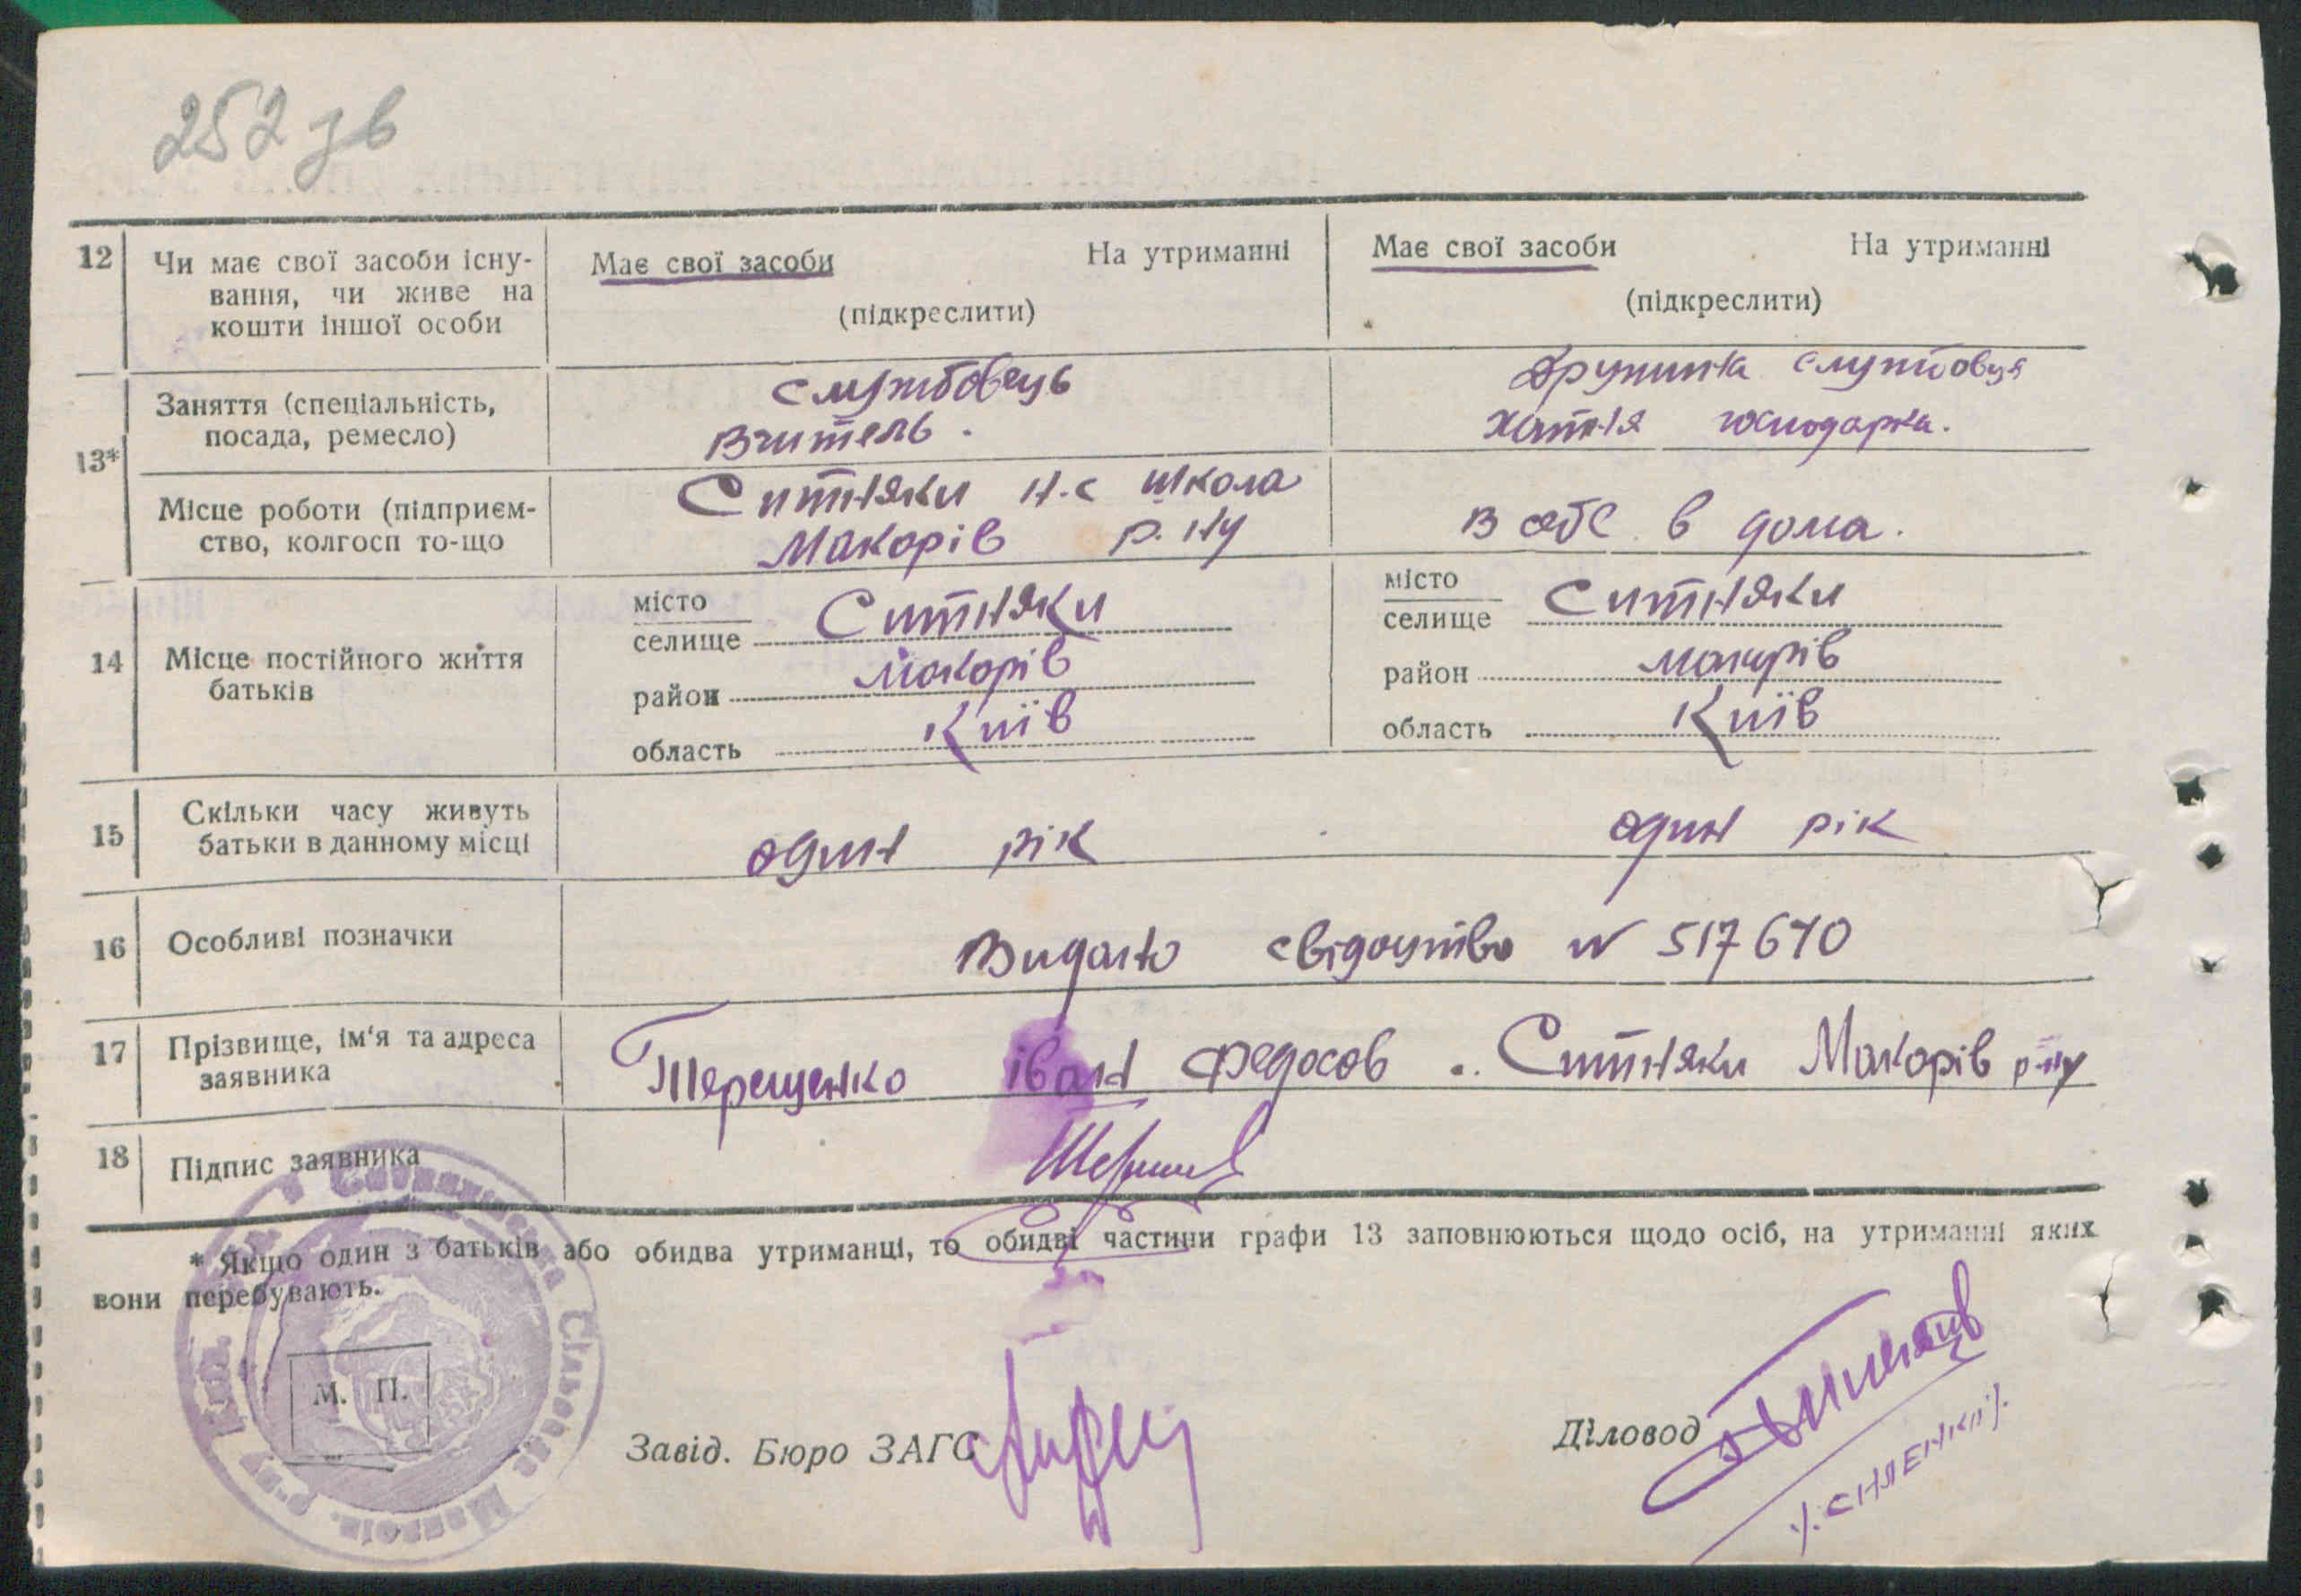 252 зв
12
Чи має свої засоби існу-
вання, чи живе на
кошти іншої особи
Має свої засоби На утриманні
(підкреслити)
Має свої засоби На утриманні
(підкреслити)
13*
Заняття (спеціальність,
посада, ремесло)
службовець
вчитель.
Дружина службовця
хатня господарка.
Місце роботи (підприєм-
ство, колгосп то-що
Ситняки н.с школа
Макорів р. ну
в себе в дома.
14
Місце постійного життя
батьків
місто
селище Ситняки
район Макорів
область Київ
місто
селище Ситняки
район Макорів
область Київ
15
Скільки часу живуть
батьки в данному місці
один рік
один рік
16
Особливі позначки
Видано свідоцтво N 517640
17
Прізвище, ім'я та адреса
заявника
Терещенко іван Федосов.. Ситняки Макорів р-ну
18
Підпис заявника
* Якщо один з батьків або обидва утриманці, то обидві частини графи 13 заповнюються щодо осіб, на утриманні яких
вони перебувають.
М. П.
Завід. Бюро ЗАГС
Діловод